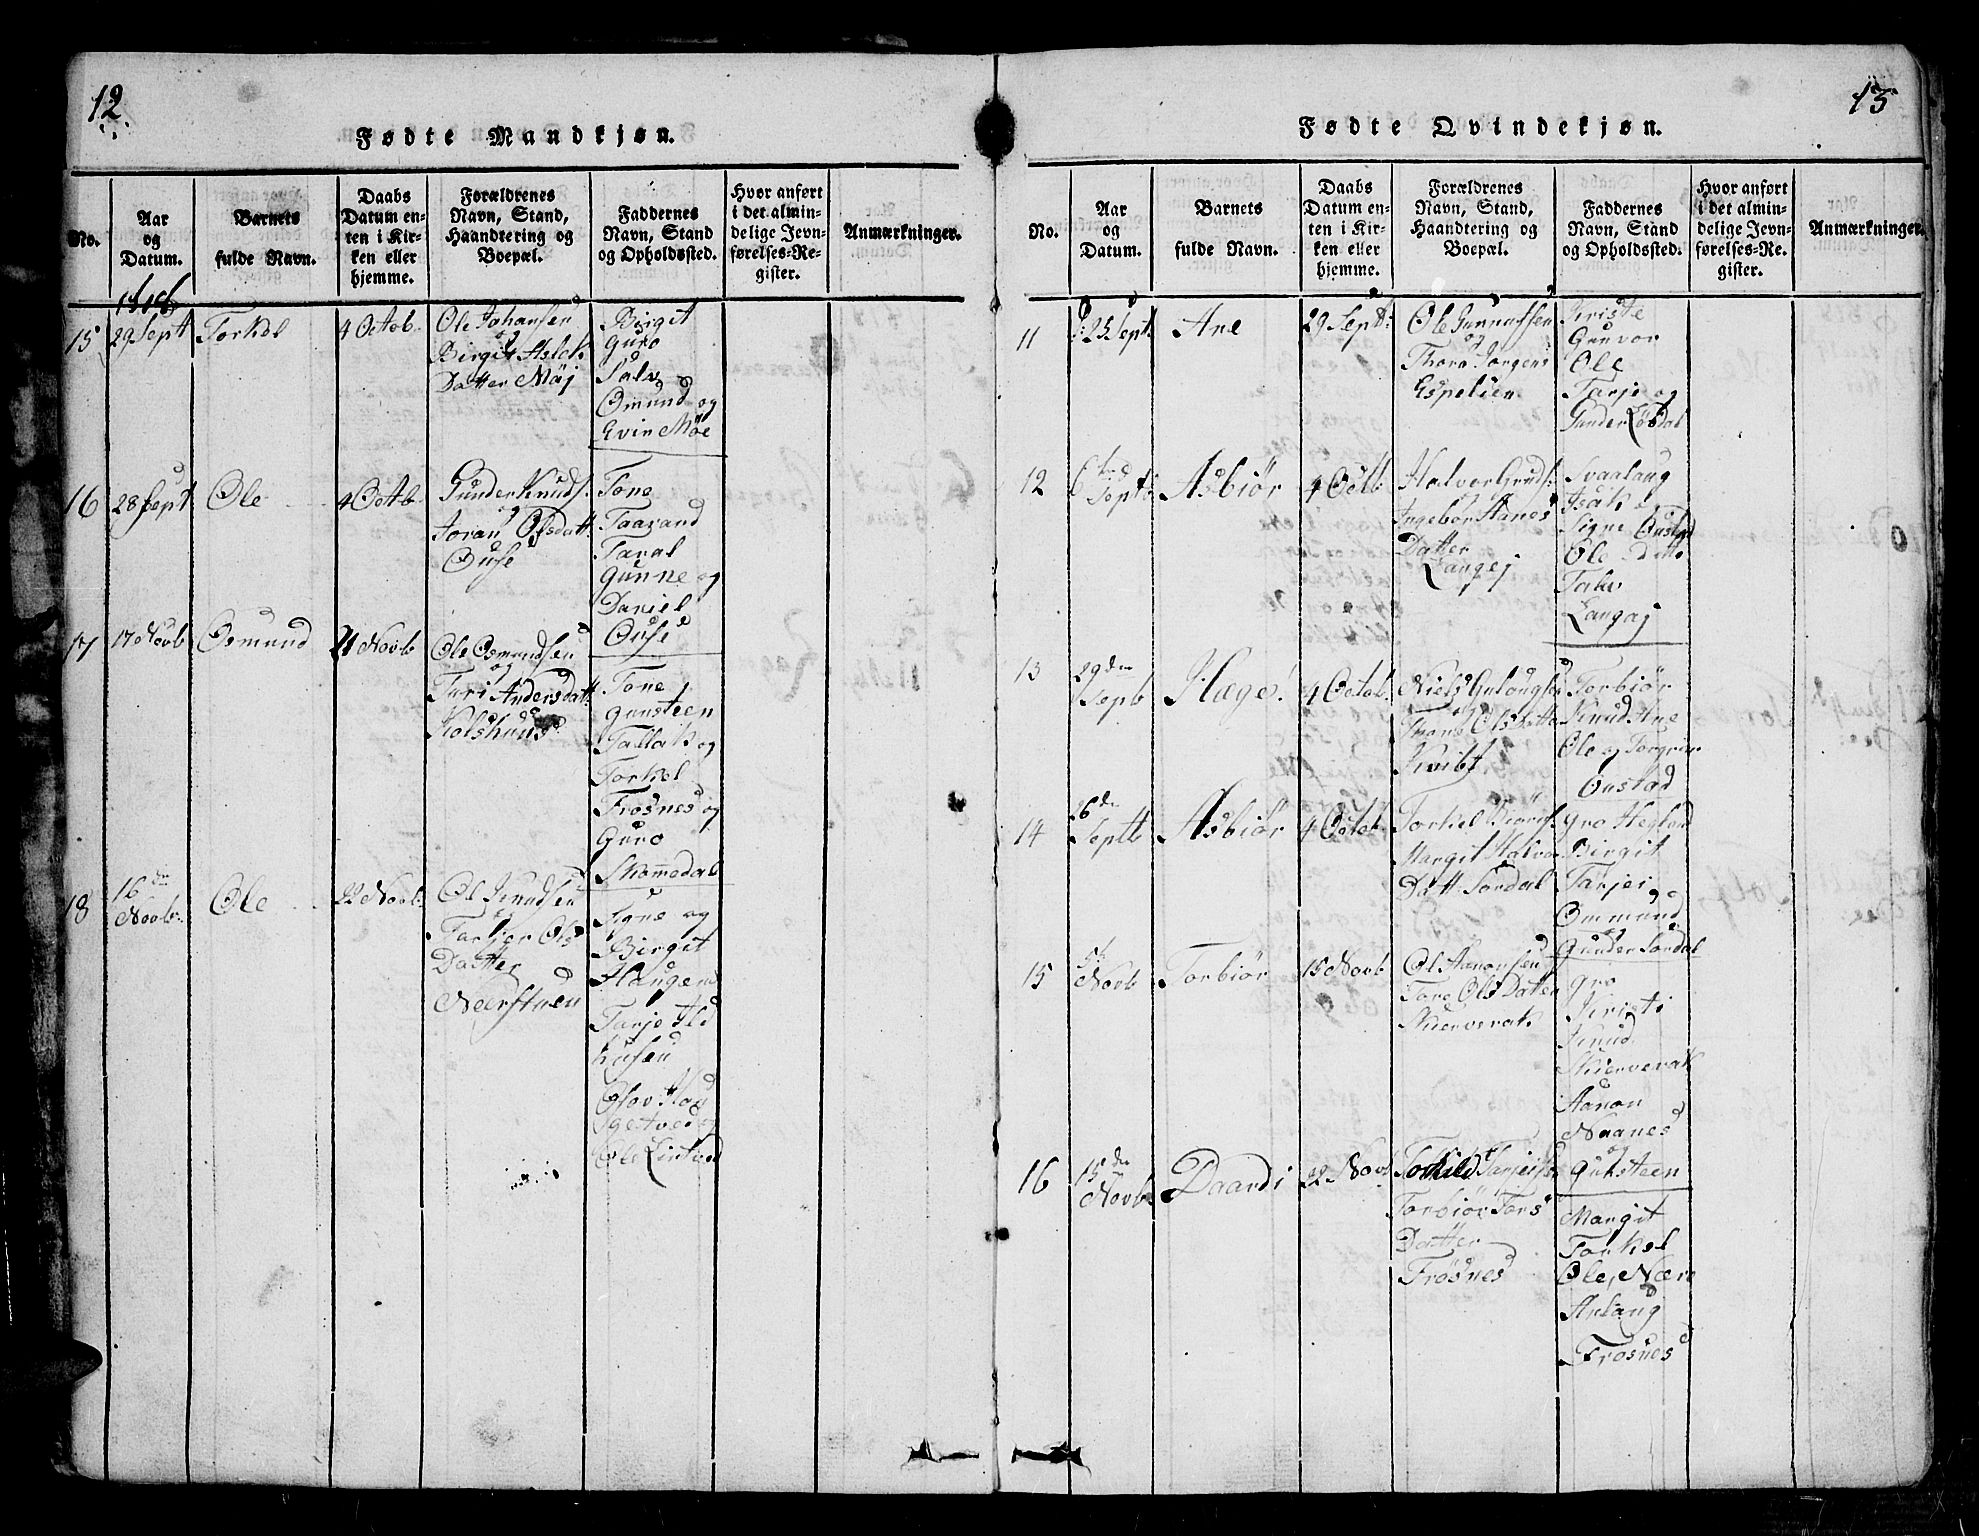 12
Fødte Mandkjøn.
No.
Aar
og
Datum.
Barnets
fulde Navn.
Daabs
Datum en-
ten i Kir-
ken eller
hjemme.
Forældrenes
Navn, Stand,
Haandtering og
Boepæl.
Faddernes
Navn, Stand
og Opholdssted.
Hvor anført
i det almin-
delige Jevn-
førelses-Re-
gister.
Anmærkninger.
1816
15
29 Sept
Torkel
4 Octob.
Ole Johansen
og
Birgit Aslak
Datter Möj
Birget
Guro
Salv
Omund og
Evin Möe
16
28 Sept
Ole
4 Octb.
Gunder Knuds.
og
Joran Olsdatt.
Ouse
Tone
Taavand
Taral
Gunne og
Daniel
Ouse
17
17 Novb
Osmund
21 Novb
Ole Osmundsen
og
Turi Andersdatt.
Tone
Gunsteen
Tallak og
Torkel
Frosnes og
Guro
Skomedal
18
16 de
Novb.
Ole
22 Novb.
Ole Knudsen
og
Ols
Datter
Signe og
Birgit
Haugen
Tarje
Olov
Ole
15
Fødte Qvindekjøn.
No.
Aar
og
Datum.
Barnets
fulde Navn.
Daabs
Datum en-
ten i Kir-
ken eller
hjemme.
Forældrenes
Navn, Stand,
Haandtering og
Boepæl.
Faddernes
Navn, Stand
og Opholdssted.
Hvor anført
i det almin-
delige Jevn-
førelses-Re-
gister.
Anmærkninger.
11
25 Sept.
Ane
29 Sept.
Ole Gunnufsen
og
Thore Jorgens
Espelien
Kriste
Gunvor
Ole
Tarje og
Gunder Lösdal
12
Septb
Asbiör
4 Octb
Halvor
Ingebor Aanes
Datter
Langej
Svaalaug
Isak
Signe Oustad
Ole Ditto
Talev
Langaj
13
29 den
Sepb
Hæge.
4 Octob.
Niels
og
Ols Datter
Kvibt
Torbiör
Knud Ane
Ole og Torgrim
Oustad
14
26 de
Septb
Asbiör
4 Octob.
Torkel Biörs.
Margit Halvor
Datt. Sordal
gro Hegland
Birgit
Tarjei
og
Ommund
Gunder Sordal
15
5te
Novb
Torbiör
15 Novb
Ol Aanonsen
Tore Ols Datter
Skierverak
gro
Kristi
Knud
Skierverak
Aanon
Naanes
og
Gunsteen
16
15 den
Novb.
Daardi
22 Nov.
Torkild Tarjeis.
Torbiör Tors
Datter
Frösnes
Margit
Torkel
Ole, Nære
Aslaug
Frosnes